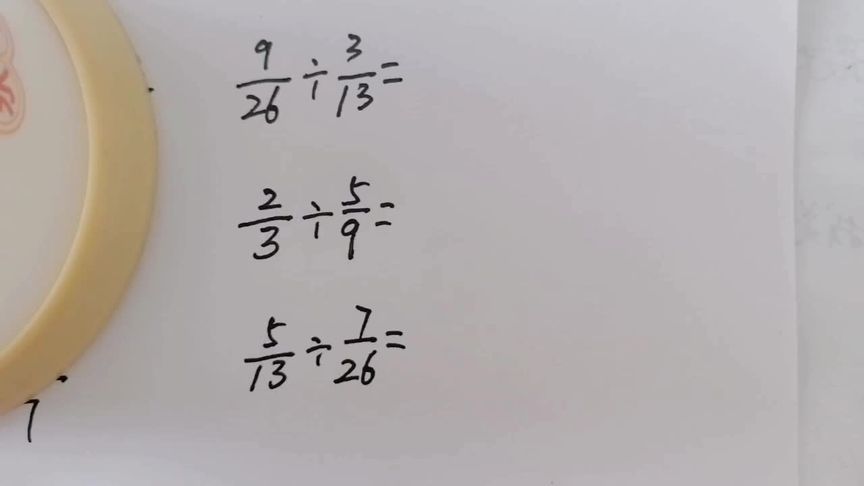 9/26 ÷ 3/13 =
2/3 ÷ 5/9 =
5/13 ÷ 7/26 =